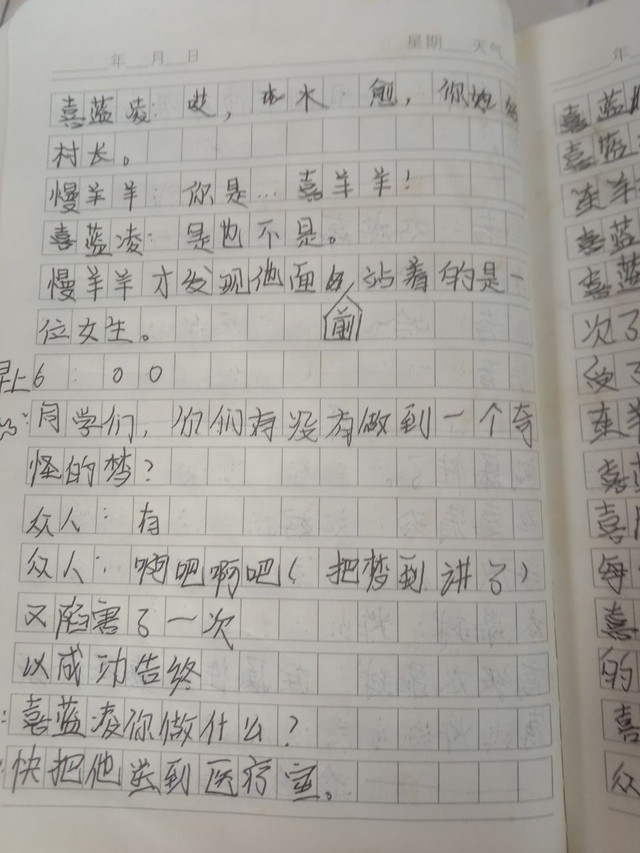 年 月 日 星期 天气
喜蓝凌：哎，水 愈，你
村长。
慢羊羊：你是…喜羊羊！
喜蓝凌：是也不是。
慢羊羊才发现他面前站着的是一
位女生。
早上6：00
：同学们，你们有没有做到一个奇
怪的梦？
众人：有
众人：啊吧啊吧（把梦到讲了）
又陷害了一次
以成功告终
：喜蓝凌你做什么？
：快把他送到医疗室。
年
喜蓝
喜蓝
喜蓝
喜蓝
次了
喜
每
喜
的
喜
众